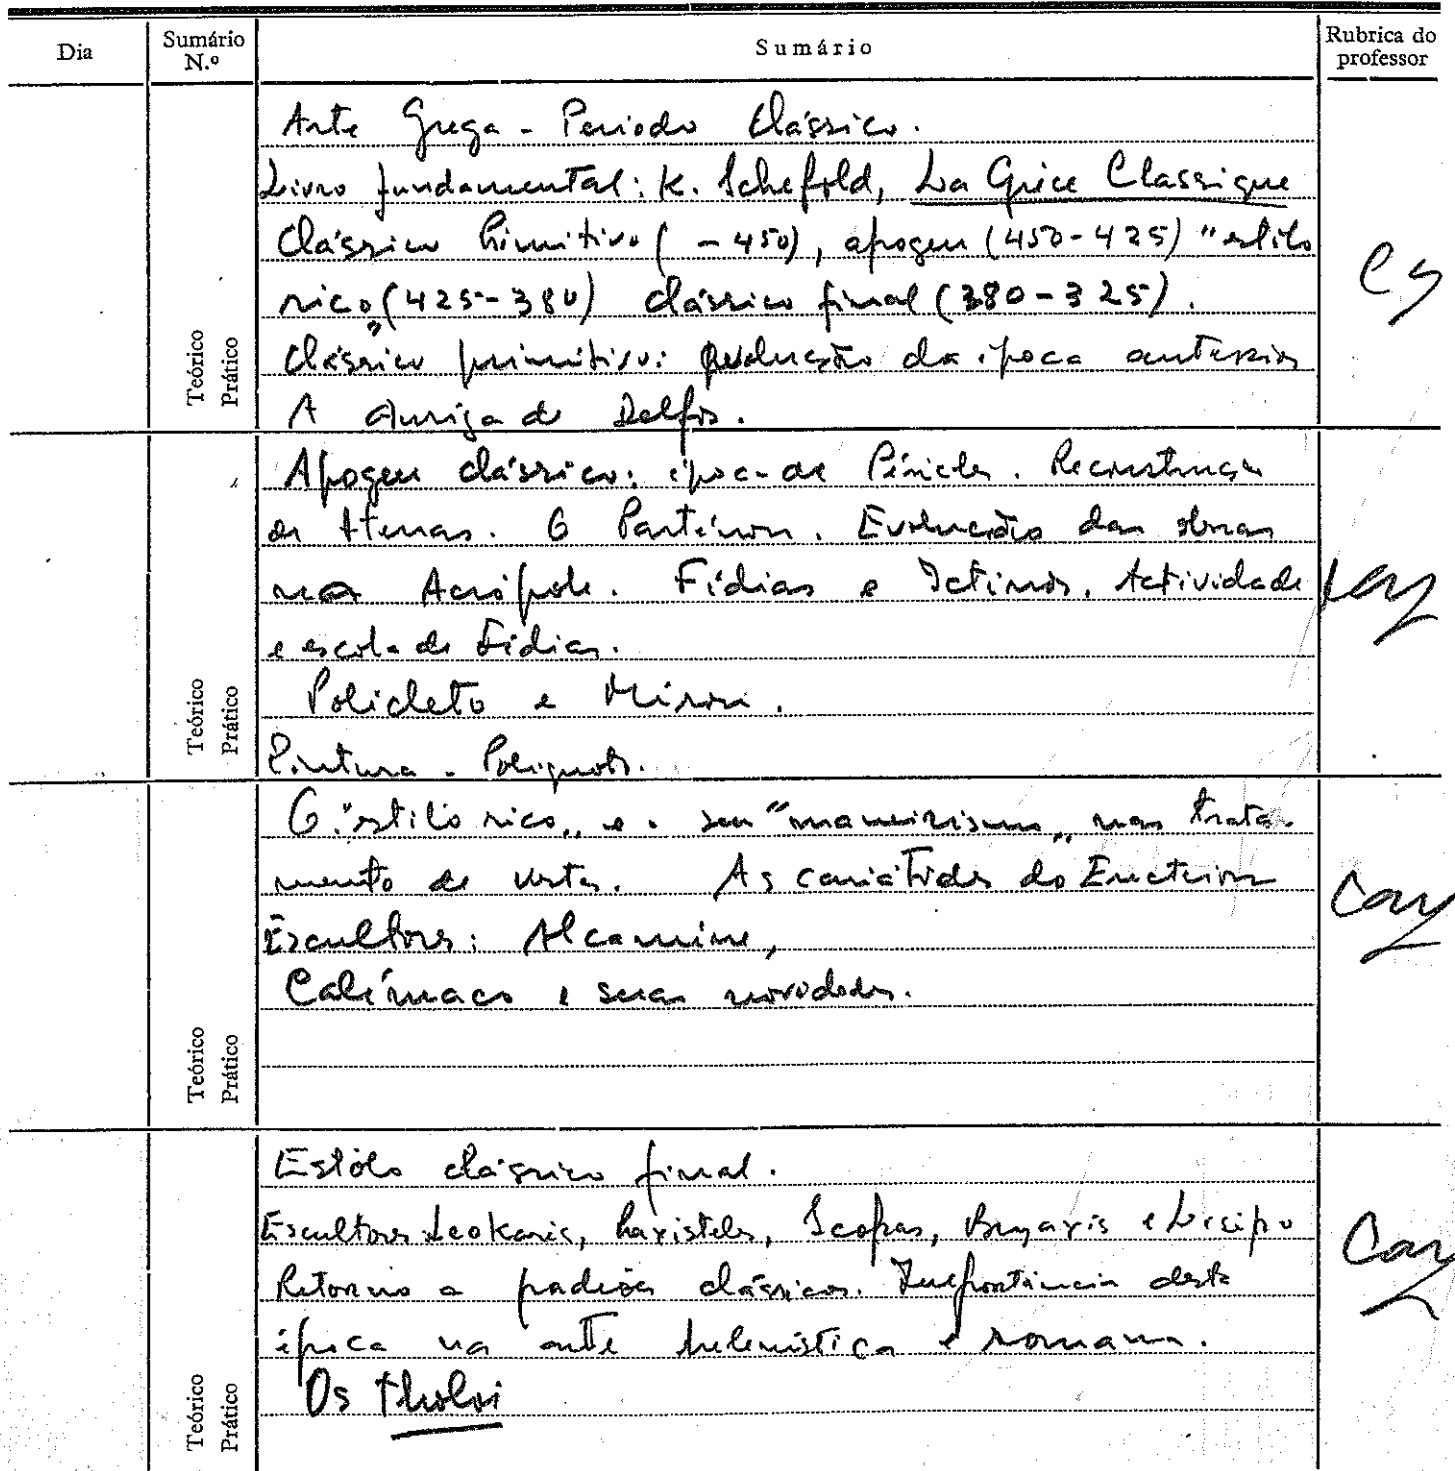 Dia
Sumário N.º
Sumário
Rubrica do professor
Arte Grega - Periodo Clássico.
Livro fundamental: K. Schefold, La Grèce Classique
Clássico Primitivo ( - 450), apogeu (450-425) "estilo
rico" (425-380) clássico final (380-325).
Clássico primitivo: evolução da época anterior
A auriga de Delfos.
Teórico
Prático
Apogeu clássico: época de Péricles. Reconstrução
de Atenas. O Partenon. Evolução das obras
na Acrópole. Fídias e Ictinos. Actividade
e escola de Fídias.
Policleto e Míron.
Pintura - Polignoto.
Teórico
Prático
O "estilo rico" e o seu "maneirismo" no trata-
mento de vestes. As cariátides do Erecteion
Escultores: Alcamene,
Calímaco e suas novidades.
Teórico
Prático
Estilo clássico final.
Escultores Leokaris, Praxisteles, Scopas, Bryaxis e Lisipo
Retorno a padrões clássicos. Importância desta
época na arte helenística e romana.
Os tholoi
Teórico
Prático